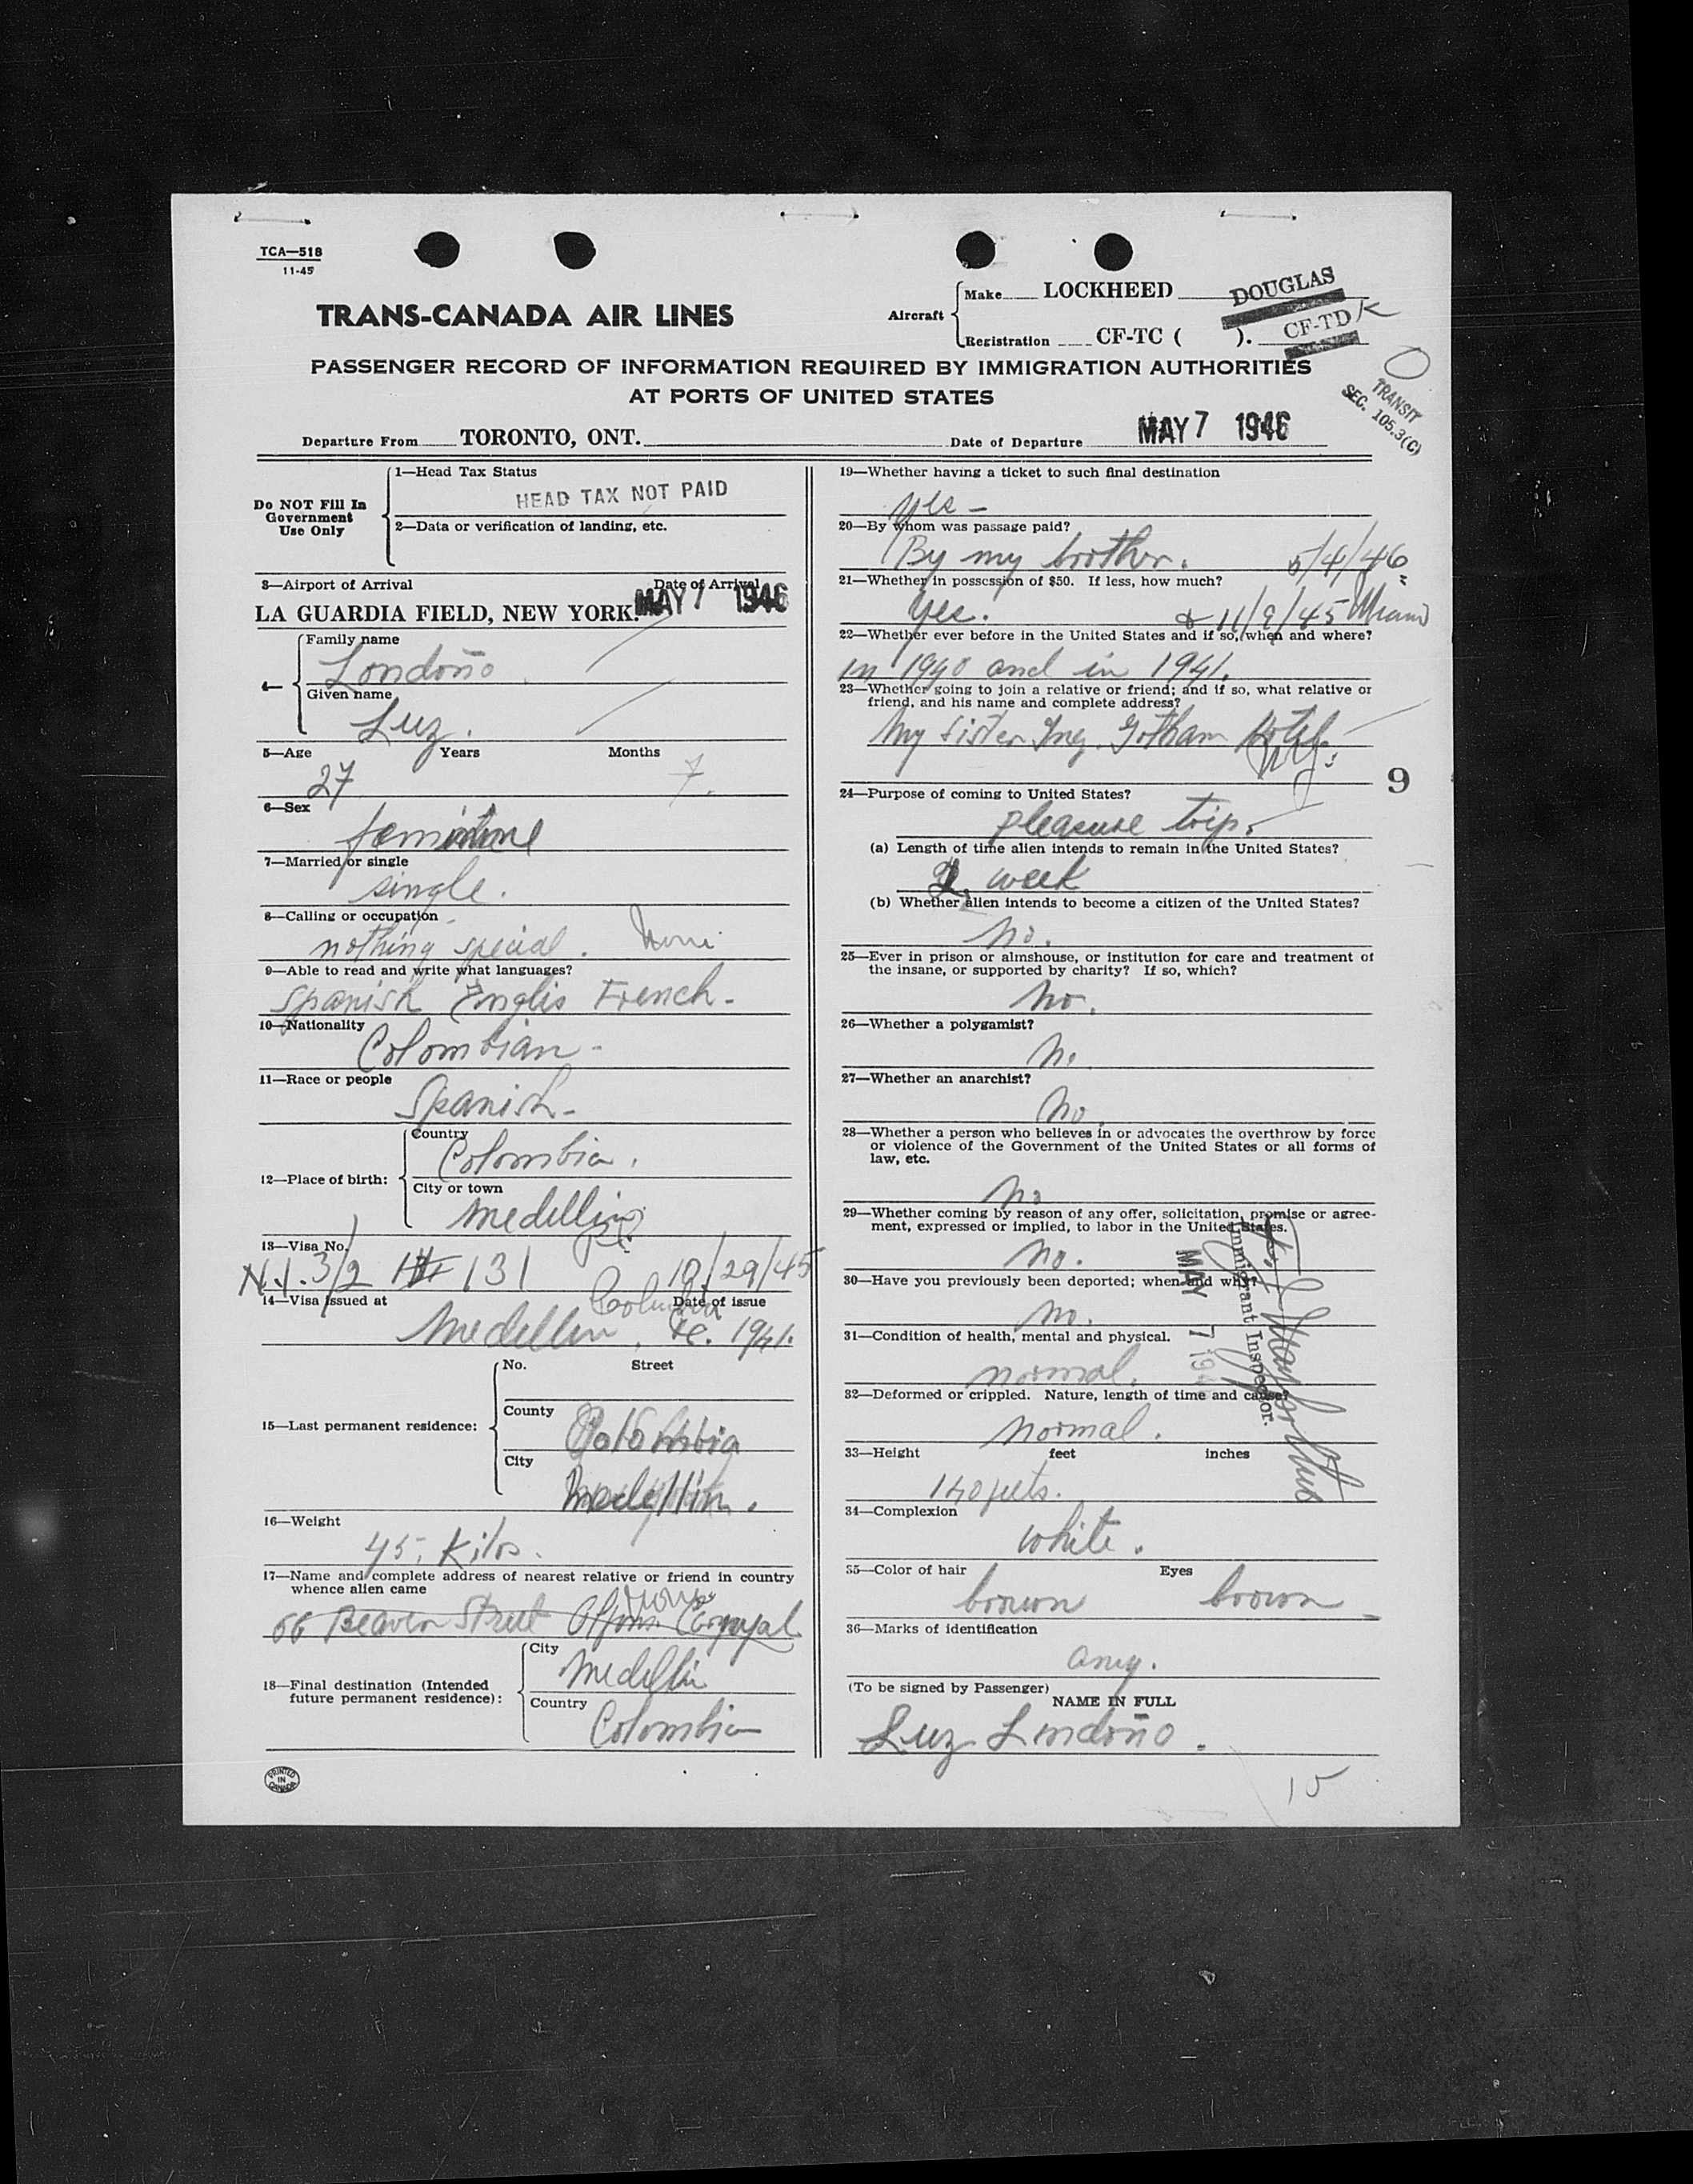 TCA—518
11-45
TRANS-CANADA AIR LINES
Aircraft
Make LOCKHEED DOUGLAS
Registration CF-TC ( ). CF-TD K
PASSENGER RECORD OF INFORMATION REQUIRED BY IMMIGRATION AUTHORITIES
AT PORTS OF UNITED STATES
TRANSIT
SEC. 105.3(C)
Departure From TORONTO, ONT. Date of Departure MAY 7 1946
Do NOT Fill In
Government
Use Only
1—Head Tax Status
HEAD TAX NOT PAID
2—Data or verification of landing, etc.
3—Airport of Arrival Date of Arrival
LA GUARDIA FIELD, NEW YORK. MAY 7 1946
4—
Family name
Londoño
Given name
Luz.
5—Age Years Months
27 7.
6—Sex
feminine
7—Married or single
single.
8—Calling or occupation
nothing special. None
9—Able to read and write what languages?
Spanish Englis French-
10—Nationality
Colombian-
11—Race or people
Spanish-
12—Place of birth:
Country
Colombia.
City or town
Medellin
13—Visa No.
N.I. 3/2 131 10/29/45
14—Visa issued at Date of issue
Medellin, 1941.
15—Last permanent residence:
No. Street
County
Colombia
City
Medellin.
16—Weight
45, Kilos.
17—Name and complete address of nearest relative or friend in country
whence alien came
66 Beaver Street
18—Final destination (Intended
future permanent residence):
City
Medellin
Country
Colombia
PRINTED
IN
CANADA
19—Whether having a ticket to such final destination
Yes-
20—By whom was passage paid?
By my brother. 5/4/46
21—Whether in possession of $50. If less, how much?
Yes. & 11/9/45 Miami
22—Whether ever before in the United States and if so, when and where?
in 1940 and in 1941.
23—Whether going to join a relative or friend; and if so, what relative or
friend, and his name and complete address?
My sister Gotham Hotel
9
24—Purpose of coming to United States?
pleasure trip.
(a) Length of time alien intends to remain in the United States?
week
(b) Whether alien intends to become a citizen of the United States?
No.
25—Ever in prison or almshouse, or institution for care and treatment of
the insane, or supported by charity? If so, which?
No.
26—Whether a polygamist?
No
27—Whether an anarchist?
No
28—Whether a person who believes in or advocates the overthrow by force
or violence of the Government of the United States or all forms of
law, etc.
No
29—Whether coming by reason of any offer, solicitation, promise or agree-
ment, expressed or implied, to labor in the United States.
No.
30—Have you previously been deported; when and why?
No.
MAY 7
Immigrant Inspector.
31—Condition of health, mental and physical.
normal.
32—Deformed or crippled. Nature, length of time and cause?
Normal.
33—Height feet inches
34—Complexion
white.
35—Color of hair Eyes
brown brown
36—Marks of identification
any.
(To be signed by Passenger)
NAME IN FULL
Luz Londoño.
15